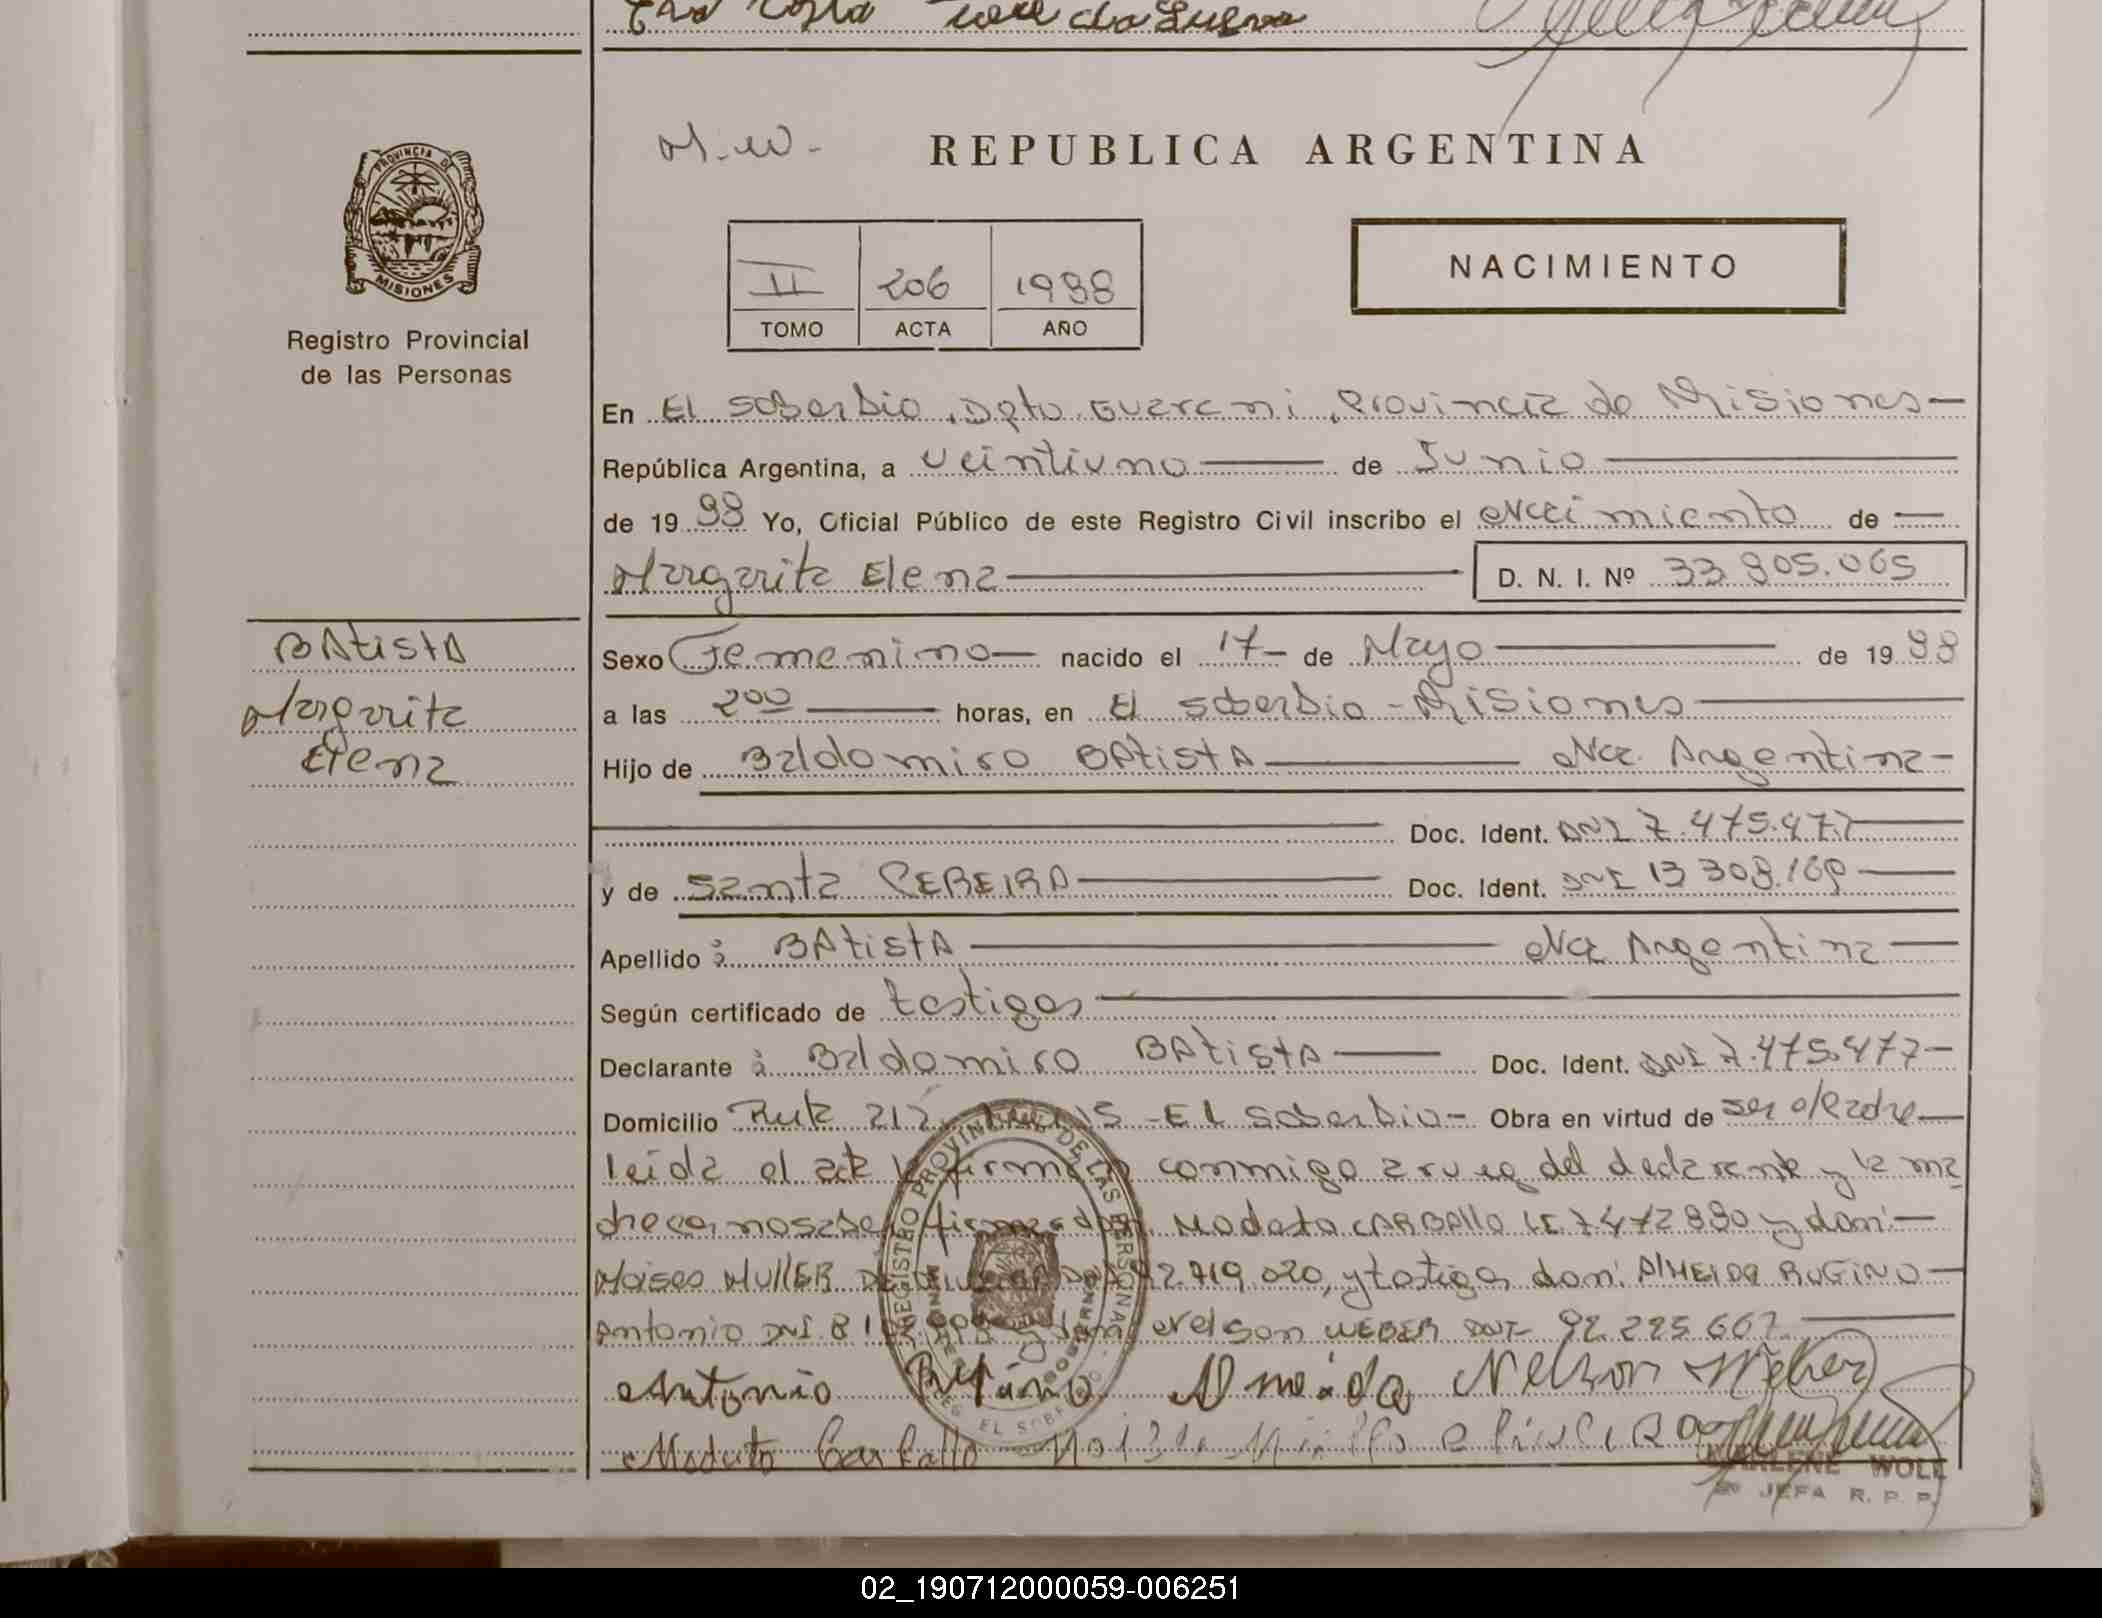 M.W.-
REPUBLICA ARGENTINA
PROVINCIA DE
MISIONES
Registro Provincial
de las Personas
II 206 1988
TOMO ACTA AÑO
NACIMIENTO
En El Soberbio, Dpto. Guarani, Provincia de Misiones—
República Argentina, a veintiuno — de Junio —
de 19 88 Yo, Oficial Público de este Registro Civil inscribo el Nacimiento de —
Margarita Elena — D. N. I. Nº 33.905.065
BAtistA
Margarita
Elena
Sexo Femenino— nacido el 17— de Mayo — de 19 88
a las 2 00 — horas, en El Soberbio - Misiones —
Hijo de Baldomiro BAtistA — Nac. Argentina—
— Doc. Ident. DNI 7.475.477—
y de Santa PEREIRA — Doc. Ident. DNI 13 308.169—
Apellido : BAtistA — Nac Argentina —
Según certificado de testigos —
Declarante : Baldomiro BAtistA — Doc. Ident. DNI 7.475.477—
Domicilio Ruta 212 - El Soberbio- Obra en virtud de ser el Padre—
leida el acta firman conmigo a ruego del declarante y la ma
dre que no saben firmar don. Modesto CARBAllo LE 7.472 890 y don:—
Moises MullER DE 92.719.020, y testigos don: AlMEIDA RUFINO—
Antonio DNI 8 y don: Nelson WEBER DNI 92.225.667.—
Antonio Rufino Almeida Nelson Weber
Modesto Carballo
MARLENE WOLL
JEFA R. P. P.
REGISTRO PROVINCIAL DE LAS PERSONAS
EL SOBERBIO
02_190712000059-006251